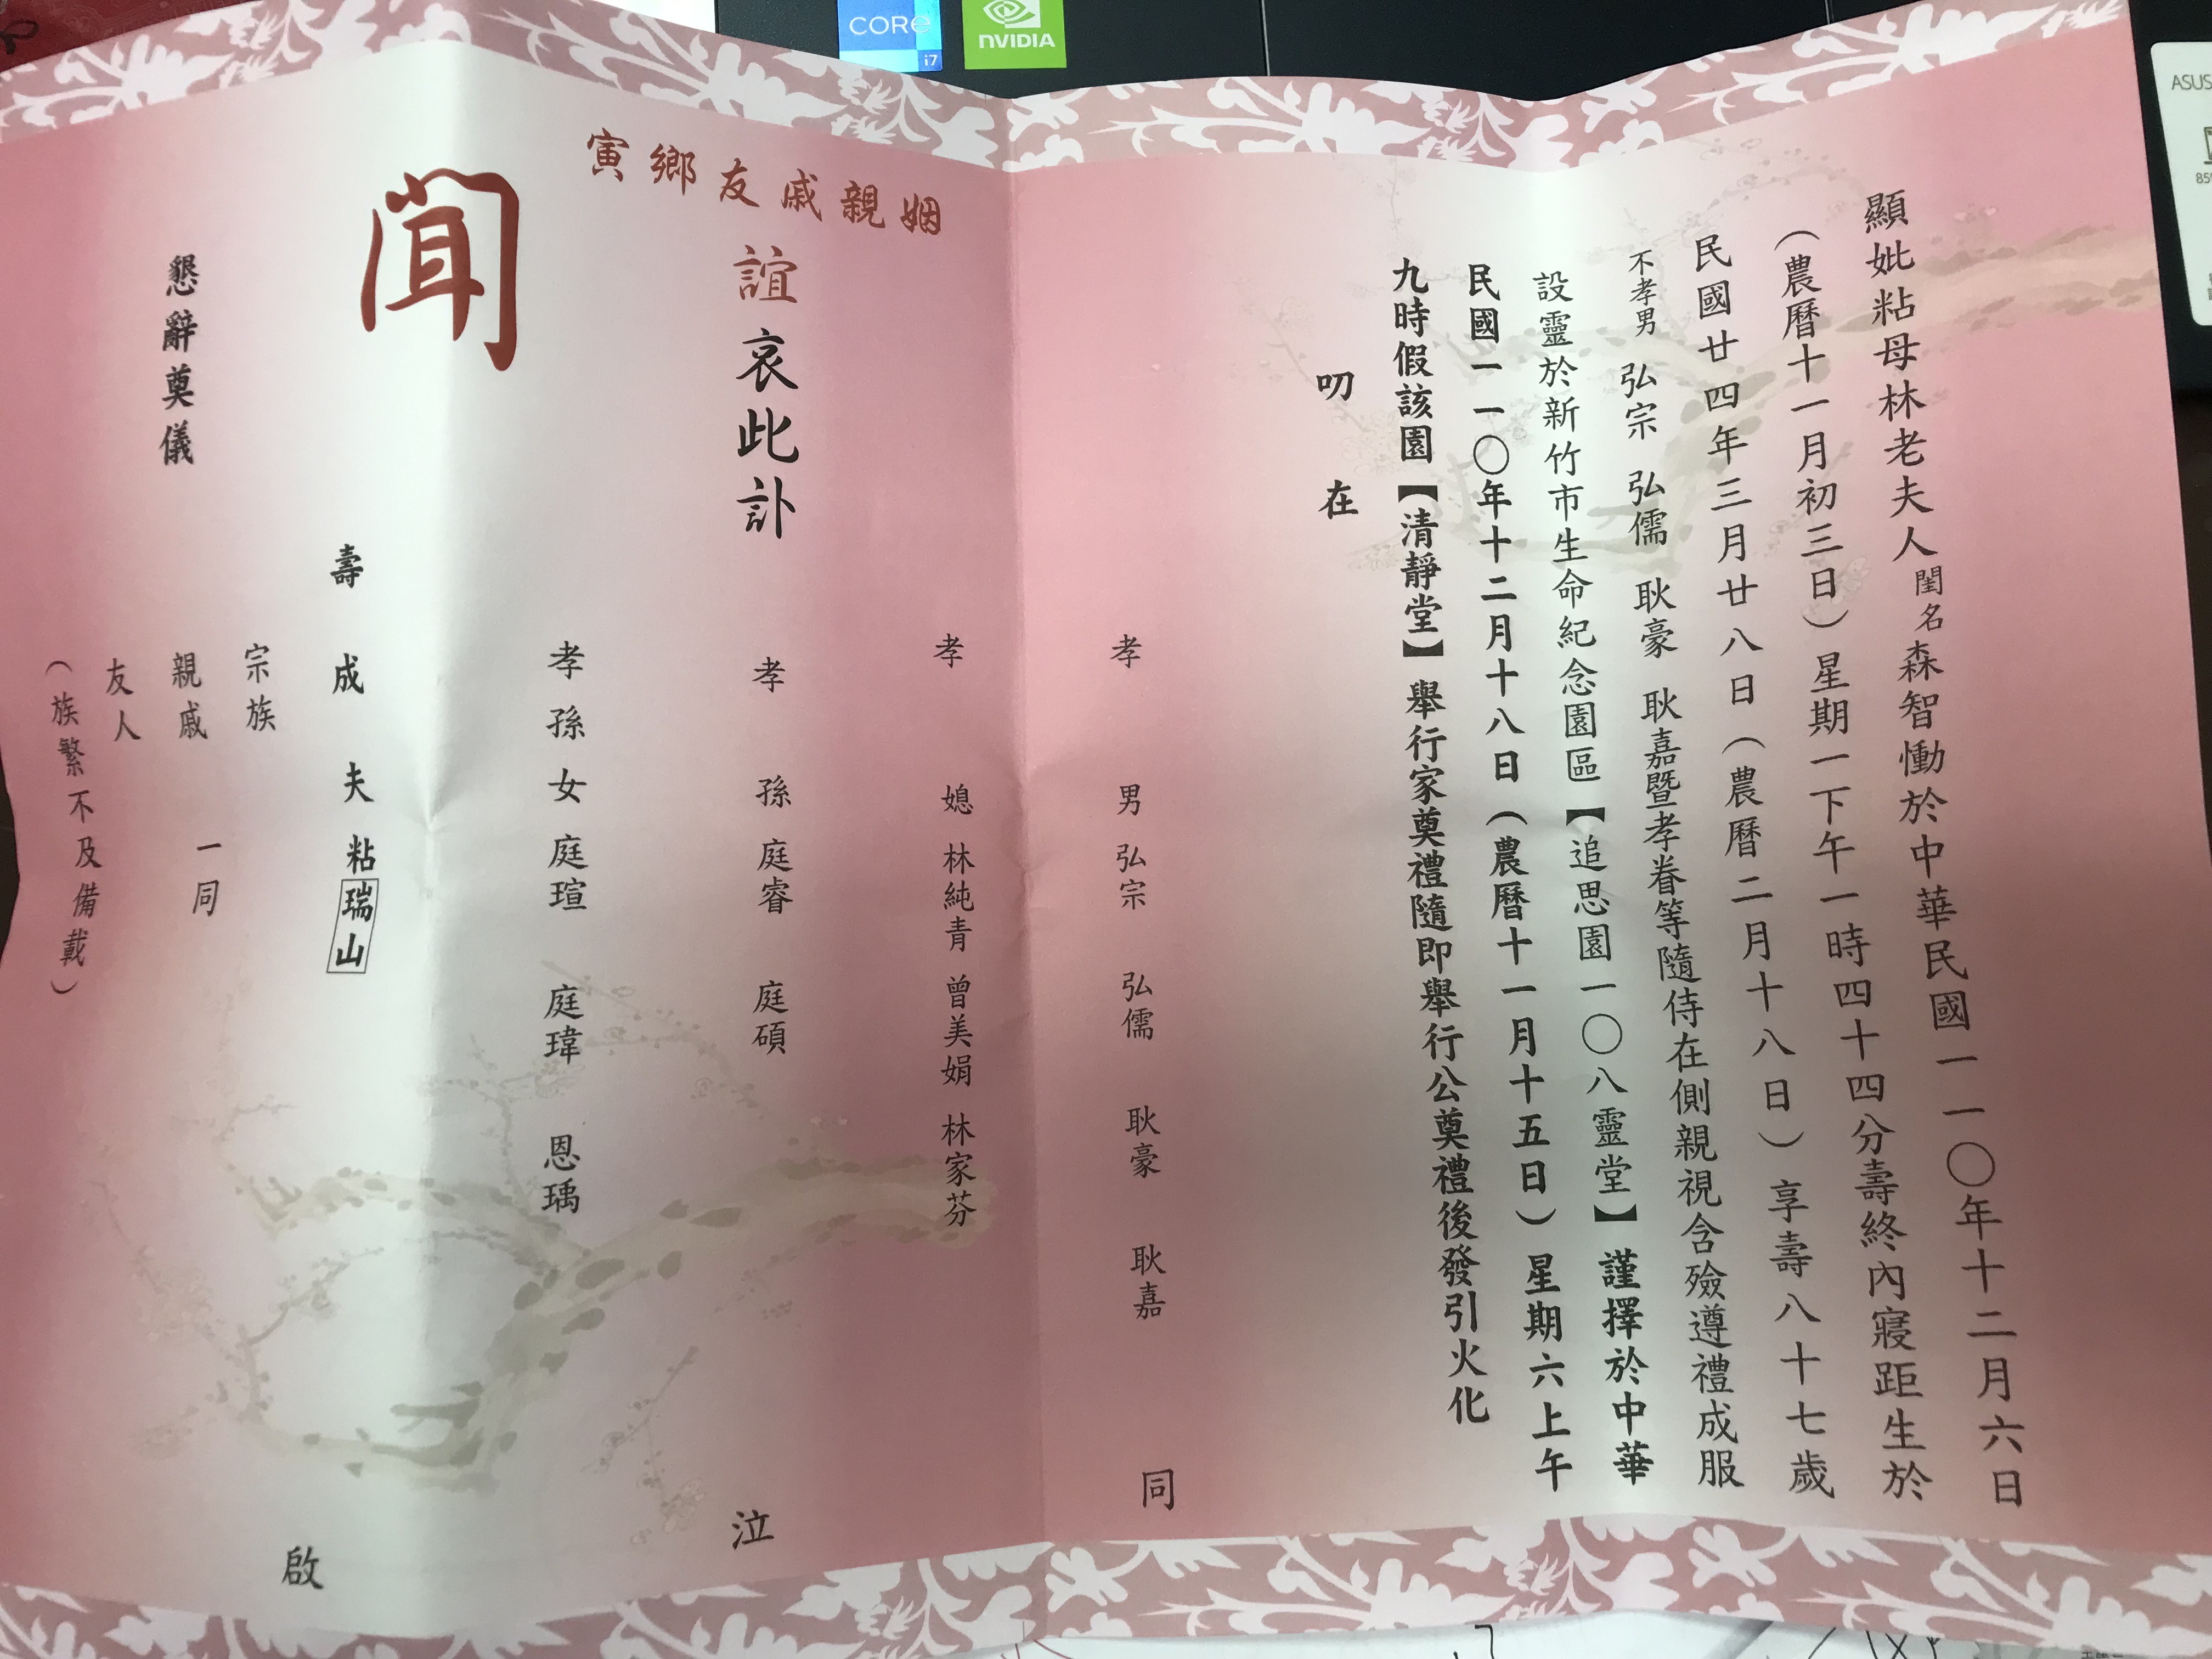 顯妣粘母林老夫人閨名森智慟於中華民國一一〇年十二月六日
（農曆十一月初三日）星期一下午一時四十四分壽終內寢距生於
民國廿四年三月廿八日（農曆二月十八日）享壽八十七歲
不孝男 弘宗 弘儒 耿豪 耿嘉暨孝眷等隨侍在側親視含殮遵禮成服
設靈於新竹市生命紀念園區【追思園一〇八靈堂】謹擇於中華
民國一一〇年十二月十八日（農曆十一月十五日）星期六上午
九時假該園【清靜堂】舉行家奠禮隨即舉行公奠禮後發引火化
叨在
姻親戚友鄉寅
誼哀此訃
聞
孝男 弘宗 弘儒 耿豪 耿嘉 同
孝媳 林純青 曾美娟 林家芬
孝孫 庭睿 庭碩 泣
孝孫女 庭瑄 庭瑋 恩瑀
壽成夫 粘瑞山 啟
懇辭奠儀
宗族
親戚 一同
友人
（族繁不及備載）
CORe
i7
NVIDIA
ASUS